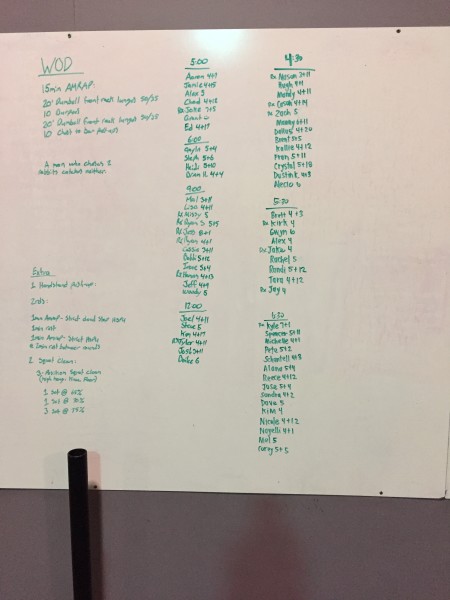 WOD
15min AMRAP:
20' Dumbell front rack lunges 50/35
10 Burpees
20' Dumbell front rack lunges 50/35
10 Chest to bar pull-ups
A man who chases 2
rabbits catches neither.
Extra
1. Handstand Pushups:
2rds:
1min rest
2. Squat Clean:
3-Position Squat Clean
1 Set @ 65%
1 Set @ 70%
3 Set @ 75%
5:00
Aaron 4+7
Jamie 4+5
Alex 5
Chad 4+12
Grant 6
Ed 4+17
6:00
Gayle 5+4
Steph 5+6
Heidi 5+10
Brian H. 4+4
9:00
Mal 3+11
Lisa 4+11
Rx Misty 5
Rx Ryan S. 5+5
Rx Jess 8+1
Rx Ryan 4+1
Cassie 3+11
Bobbi 5+12
Irene 5+4
Rx Hannah 4+13
Jeff 4+9
Woody 5
12:00
Joel 4+11
Steve 5
Kim 4+17
Tyler 4+11
Josh 3+11
Drake 6
4:30
Rx Mason 3+11
Hugh 4+1
Mandy 4+11
Rx Cesar 4+14
Rx Zach 5
Manny 6+11
Dallas 4+20
Brent 5+5
Kallie 4+12
Fran 5+11
Crystal 5+18
Dustin K 4+8
Alecia 6
5:30
Brett 4+3
Rx Kirk 4
Gwyn 6
Alex 4
Rx Jake 4
Rachel 5
Randi 5+12
Tara 4+12
Rx Jay 4
6:30
Rx Kyle 7+1
Spencer 5+11
Michelle 4+1
Pete 5+2
Shantell 4+8
Alana 5+4
Reece 4+12
Jase 5+4
Sandra 4+2
Dave 5
Kim 4
Nicole 4+12
Noyelli 4+1
Neil 5
Corey 5+5